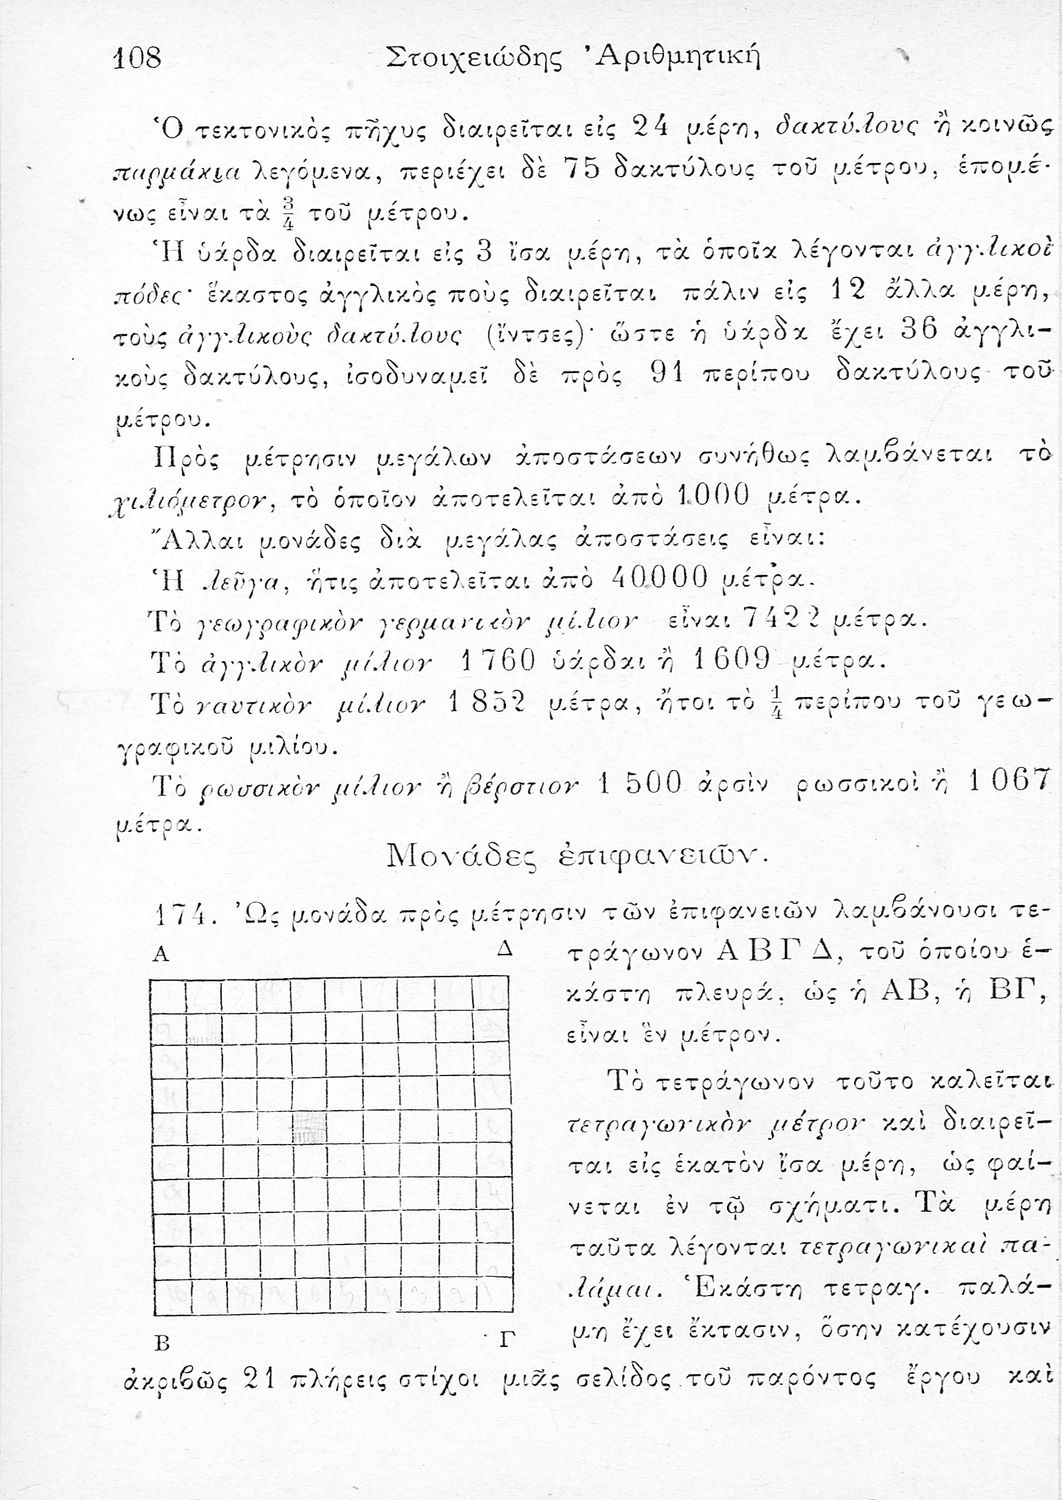 108 Στοιχειώδης Ἀριθμητική
Ὁ τεκτονικὸς πῆχυς διαιρεῖται εἰς 24 μέρη, δακτύλους ἢ κοινῶς
παρμάκια λεγόμενα, περιέχει δὲ 75 δακτύλους τοῦ μέτρου, ἑπομέ-
νως εἶναι τὰ 3/4 τοῦ μέτρου.
Ἡ ὑάρδα διαιρεῖται εἰς 3 ἴσα μέρη, τὰ ὁποῖα λέγονται ἀγγλικοὶ
πόδες· ἕκαστος ἀγγλικὸς ποὺς διαιρεῖται πάλιν εἰς 12 ἄλλα μέρη,
τοὺς ἀγγλικοὺς δακτύλους (ἴντσες)· ὥστε ἡ ὑάρδα ἔχει 36 ἀγγλι-
κοὺς δακτύλους, ἰσοδυναμεῖ δὲ πρὸς 91 περίπου δακτύλους τοῦ
μέτρου.
Πρὸς μέτρησιν μεγάλων ἀποστάσεων συνήθως λαμβάνεται τὸ
χιλιόμετρον, τὸ ὁποῖον ἀποτελεῖται ἀπὸ 1000 μέτρα.
Ἄλλαι μονάδες διὰ μεγάλας ἀποστάσεις εἶναι:
Ἡ λεῦγα, ἥτις ἀποτελεῖται ἀπὸ 40000 μέτρα.
Τὸ γεωγραφικὸν γερμανικὸν μίλιον εἶναι 7422 μέτρα.
Τὸ ἀγγλικὸν μίλιον 1760 ὑάρδαι ἢ 1609 μέτρα.
Τὸ ναυτικὸν μίλιον 1852 μέτρα, ἤτοι τὸ 1/4 περίπου τοῦ γεω-
γραφικοῦ μιλίου.
Τὸ ρωσσικὸν μίλιον ἢ βέρστιον 1500 ἀρσὶν ρωσσικοὶ ἢ 1067
μέτρα.
Μονάδες ἐπιφανειῶν.
174. Ὡς μονάδα πρὸς μέτρησιν τῶν ἐπιφανειῶν λαμβάνουσι τε-
Α Δ
τράγωνον ΑΒΓΔ, τοῦ ὁποίου ἑ-
κάστη πλευρά, ὡς ἡ ΑΒ, ἡ ΒΓ,
εἶναι ἓν μέτρον.
Τὸ τετράγωνον τοῦτο καλεῖται
τετραγωνικὸν μέτρον καὶ διαιρεῖ-
ται εἰς ἑκατὸν ἴσα μέρη, ὡς φαί-
νεται ἐν τῷ σχήματι. Τὰ μέρη
ταῦτα λέγονται τετραγωνικαὶ πα-
λάμαι. Ἑκάστη τετραγ. παλά-
μη ἔχει ἔκτασιν, ὅσην κατέχουσιν
Β Γ
ἀκριβῶς 21 πλήρεις στίχοι μιᾶς σελίδος τοῦ παρόντος ἔργου καὶ